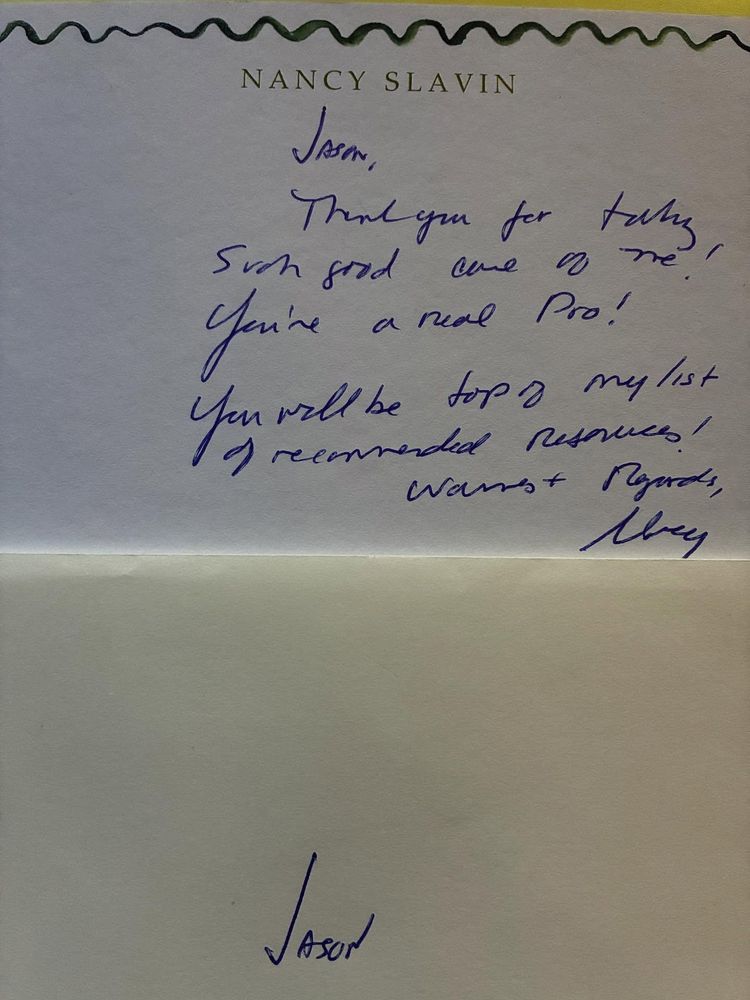 NANCY SLAVIN
Jason,
Thank you for taking
Such good care of me!
You're a real Pro!
You will be top of my list
of recommended resources!
Warmest Regards,
Nancy
JASON